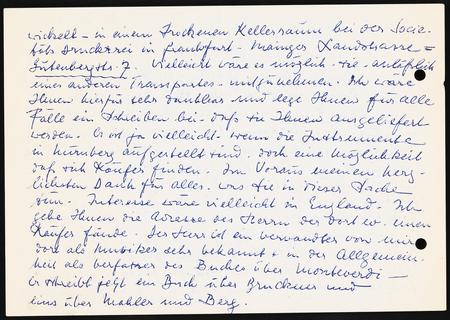 wickelt – in einem trockenen Kellerraum bei der Socie-
täts Druckerei in Frankfurt – Mainzer Landstrasse =
Gutenbergstr. 7. Vielleicht wäre es möglich – sie – anläßlich
eines anderen Transportes – mitzunehmen. Ich wäre
Ihnen hierfür sehr dankbar – und lege Ihnen für alle
Fälle ein Schreiben bei – daß sie Ihnen ausgeliefert
werden. Es ist ja vielleicht – wenn die Instrumente
in Nürnberg aufgestellt sind – doch eine Möglichkeit
daß sich Käufer finden. Im Voraus meinen herz-
lichsten Dank für alles – was Sie in dieser Sache
tun. Interesse wäre vielleicht in England. Ich
gebe Ihnen die Adresse des Herrn der dort ev. einen
Käufer fände. Der Herr ist ein Verwandter von mir
dort als Musiker sehr bekannt + in der Allgemein-
heit als Verfasser des Buches über Monteverdi –
Er schreibt jetzt ein Buch über Bruckner und
eins über Mahler und Berg.